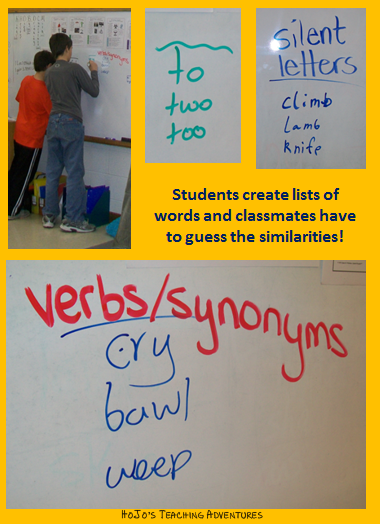 verbs/synonyms
to
two
too
silent
letters
climb
lamb
knife
Students create lists of
words and classmates have
to guess the similarities!
verbs/synonyms
cry
bawl
weep
HoJo's Teaching Adventures